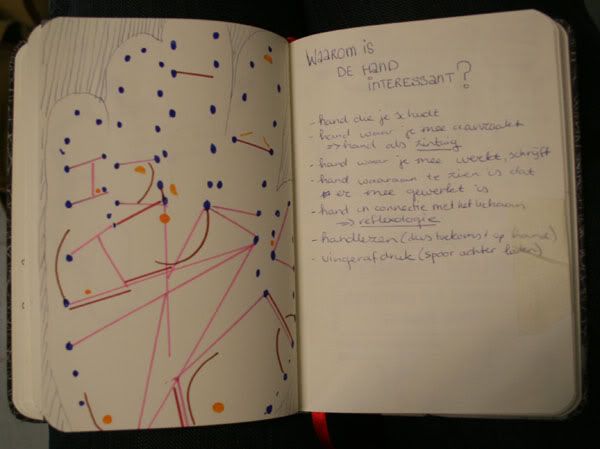 WAAROM IS
DE HAND
INTERESSANT?
- hand die je schudt
- hand waar je mee aanraakt
=> hand als zintuig
- hand waar je mee werkt, schrijft
- hand waaraan te zien is dat
er mee gewerkt is
- hand in connectie met het lichaam
=> reflexologie
- handlezen (dus toekomst op hand)
- vingerafdruk (spoor achter laten)